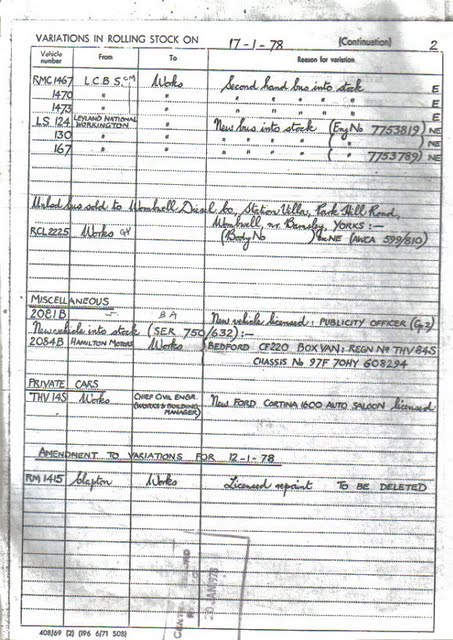 VARIATIONS IN ROLLING STOCK ON 17-1-78 (Continuation) 2
Vehicle number From To Reason for variation
RMC 1467 L.C.B.S. CM Works Second hand bus into stock E
1470 " " " " " " " E
1473 " " " " " " " E
LS 124 LEYLAND NATIONAL WORKINGTON " New bus into stock (Eng No 7753819) NE
130 " " " " " " ( " ) NE
167 " " " " " " ( " 7753789) NE
bus sold to Wombwell Diesel Co, Station Villa, Park Hill Road,
Wombwell, nr. Barnsley, YORKS :—
RCL 2225 Works GY (Body No ) NE (AWCA 599/810)
MISCELLANEOUS
2081B BA New vehicle licensed: PUBLICITY OFFICER (Gp.2)
New vehicle into stock (SER 750/632):—
2084B HAMILTON MOTORS Works BEDFORD CF220 BOX VAN: REGN No THV 84S
CHASSIS No 97F 70HY 608294
PRIVATE CARS
THV 14S Works CHIEF CIVIL ENGR. (WORKS & BUILDING MANAGER) New FORD CORTINA 1600 AUTO SALOON licensed
AMENDMENT TO VARIATIONS FOR 12-1-78
RM 1415 Clapton Works Licensed reprint TO BE DELETED
20 JAN 1978
408/69 (2) (196 6/71 50B)